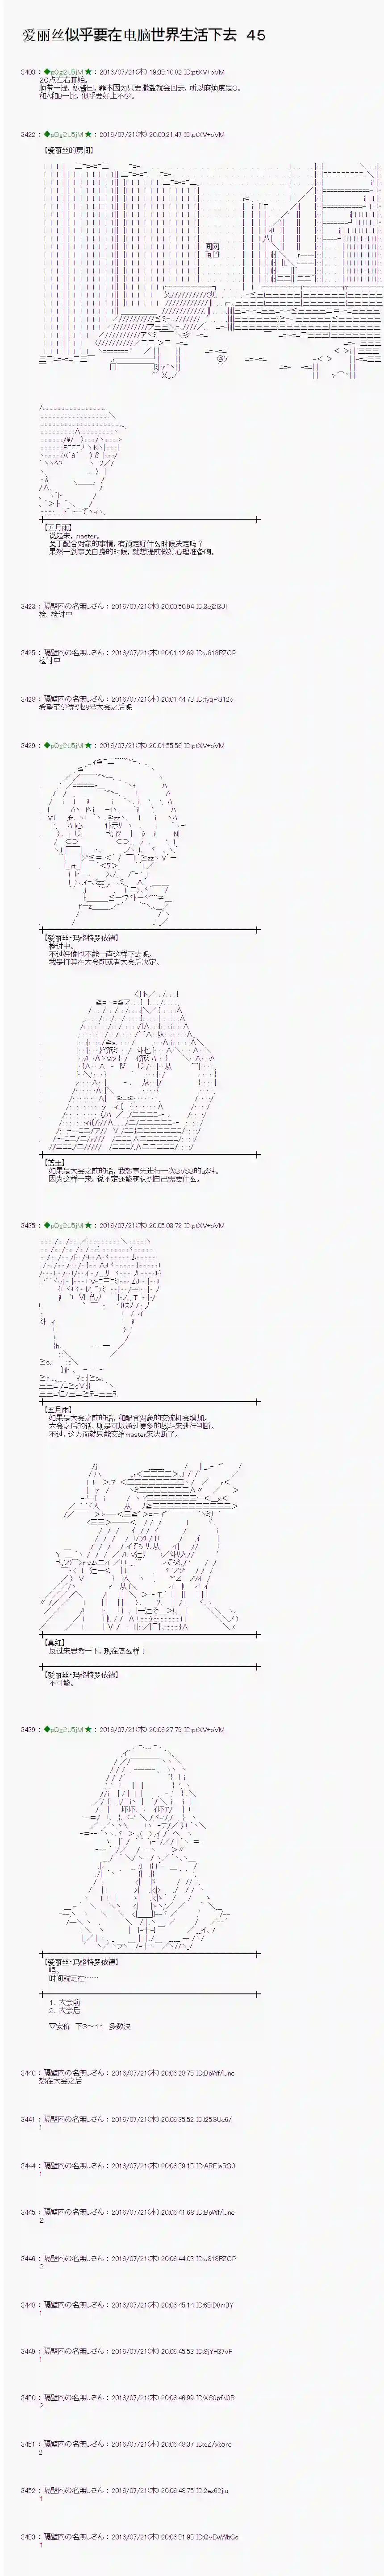 爱丽丝似乎要在电脑世界生活下去 45
3403 : ◆pOgl2U5jM ★ : 2016/07/21(木) 19:35:10.82 ID:ptXV+oVM
20点左右开始。
和A和B一比，似乎要好上不少。
3422 : ◆pOgl2U5jM ★ : 2016/07/21(木) 20:00:21.47 ID:ptXV+oVM
【爱丽丝的房间】
【五月雨】
说起来，master。
关于配合对象的事情，有预定好什么时候决定吗？
果然一到事关自身的时候，就想提前做好心理准备啊。
3423 : 隔壁内の名無しさん : 2016/07/21(木) 20:00:50.94 ID:3cj2I3JI
检，检讨中
3425 : 隔壁内の名無しさん : 2016/07/21(木) 20:01:12.89 ID:J818RZCP
检讨中
3428 : 隔壁内の名無しさん : 2016/07/21(木) 20:01:44.73 ID:fyqPG12o
希望至少等到29号大会之后呢
3429 : ◆pOgl2U5jM ★ : 2016/07/21(木) 20:01:55.56 ID:ptXV+oVM
【爱丽丝·玛格特罗依德】
检讨中。
不过好像也不能一直这样下去呢。
我是打算在大会前或者大会后决定。
【蓝玉】
如果是大会之前的话，我想事先进行一次3VS3的战斗。
因为这样一来，说不定还能确认到自己需要什么。
3435 : ◆pOgl2U5jM ★ : 2016/07/21(木) 20:05:03.72 ID:ptXV+oVM
【五月雨】
如果是大会之前的话，和配合对象的交流机会增加。
大会之后的话，则是可以通过更多的战斗来进行判断。
不过，这方面就只能交给master来决断了。
【真红】
反过来思考一下，现在怎么样！
【爱丽丝·玛格特罗依德】
不可能。
3439 : ◆pOgl2U5jM ★ : 2016/07/21(木) 20:06:27.79 ID:ptXV+oVM
【爱丽丝·玛格特罗依德】
唔。
时间就定在……
1．大会前
2．大会后
▽安价 下3～11 多数决
3440 : 隔壁内の名無しさん : 2016/07/21(木) 20:06:28.75 ID:BpWf/Unc
想在大会之后
3441 : 隔壁内の名無しさん : 2016/07/21(木) 20:06:35.52 ID:I25SUc6/
1
3444 : 隔壁内の名無しさん : 2016/07/21(木) 20:06:39.15 ID:AREjeRG0
1
3445 : 隔壁内の名無しさん : 2016/07/21(木) 20:06:41.68 ID:BpWf/Unc
2
3446 : 隔壁内の名無しさん : 2016/07/21(木) 20:06:44.03 ID:J818RZCP
2
3448 : 隔壁内の名無しさん : 2016/07/21(木) 20:06:45.14 ID:65iD8m3Y
1
3449 : 隔壁内の名無しさん : 2016/07/21(木) 20:06:45.53 ID:8jYH37vF
1
3450 : 隔壁内の名無しさん : 2016/07/21(木) 20:06:46.99 ID:XS0pfN0B
2
3451 : 隔壁内の名無しさん : 2016/07/21(木) 20:06:48.37 ID:eZ/xb5rc
2
3452 : 隔壁内の名無しさん : 2016/07/21(木) 20:06:48.75 ID:2ez62jIu
1
3453 : 隔壁内の名無しさん : 2016/07/21(木) 20:06:51.95 ID:OvBwWbGs
1